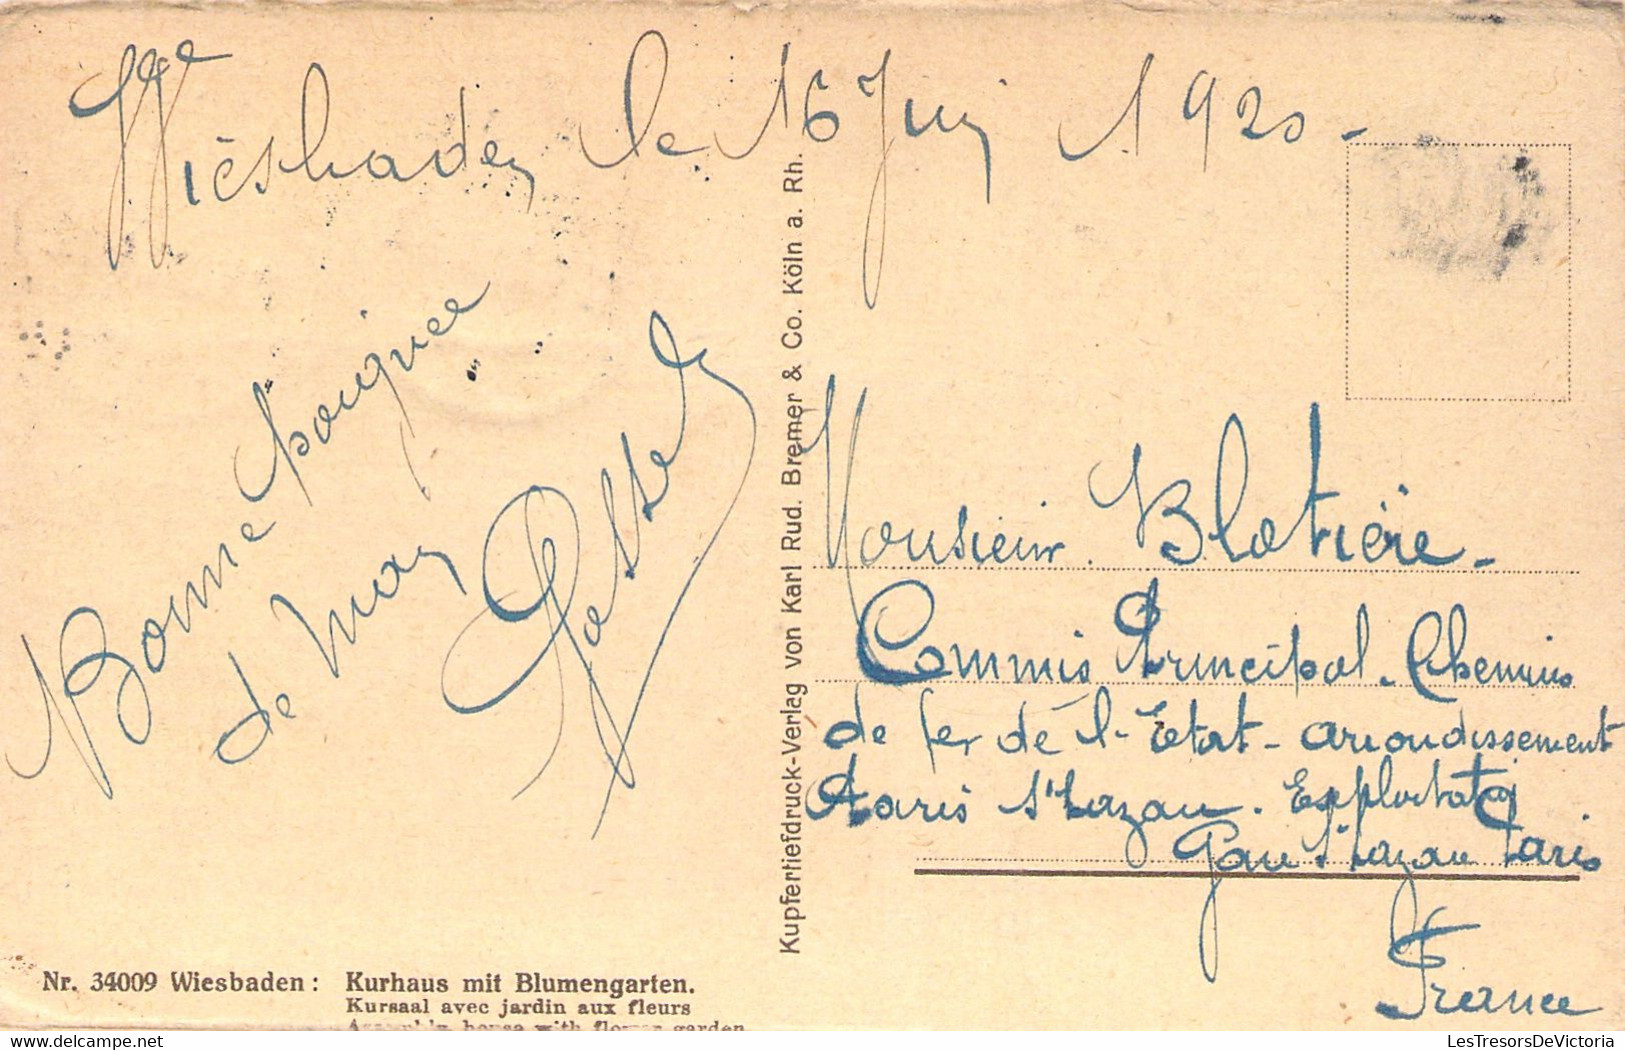 Wiesbaden le 16 Juin 1920 -
Bonne poignee
de main
Monsieur Blotière -
Commis Principal. Chemins
de fer de l'-Etat - arrondissement
Paris St Lazare. Exploitation
Gare St Lazare Paris
France
Kupfertiefdruck-Verlag von Karl Rud. Bremer & Co. Köln a. Rh.
Nr. 34009 Wiesbaden: Kurhaus mit Blumengarten.
Kursaal avec jardin aux fleurs
house with flower garden
LesTresorsDeVictoria